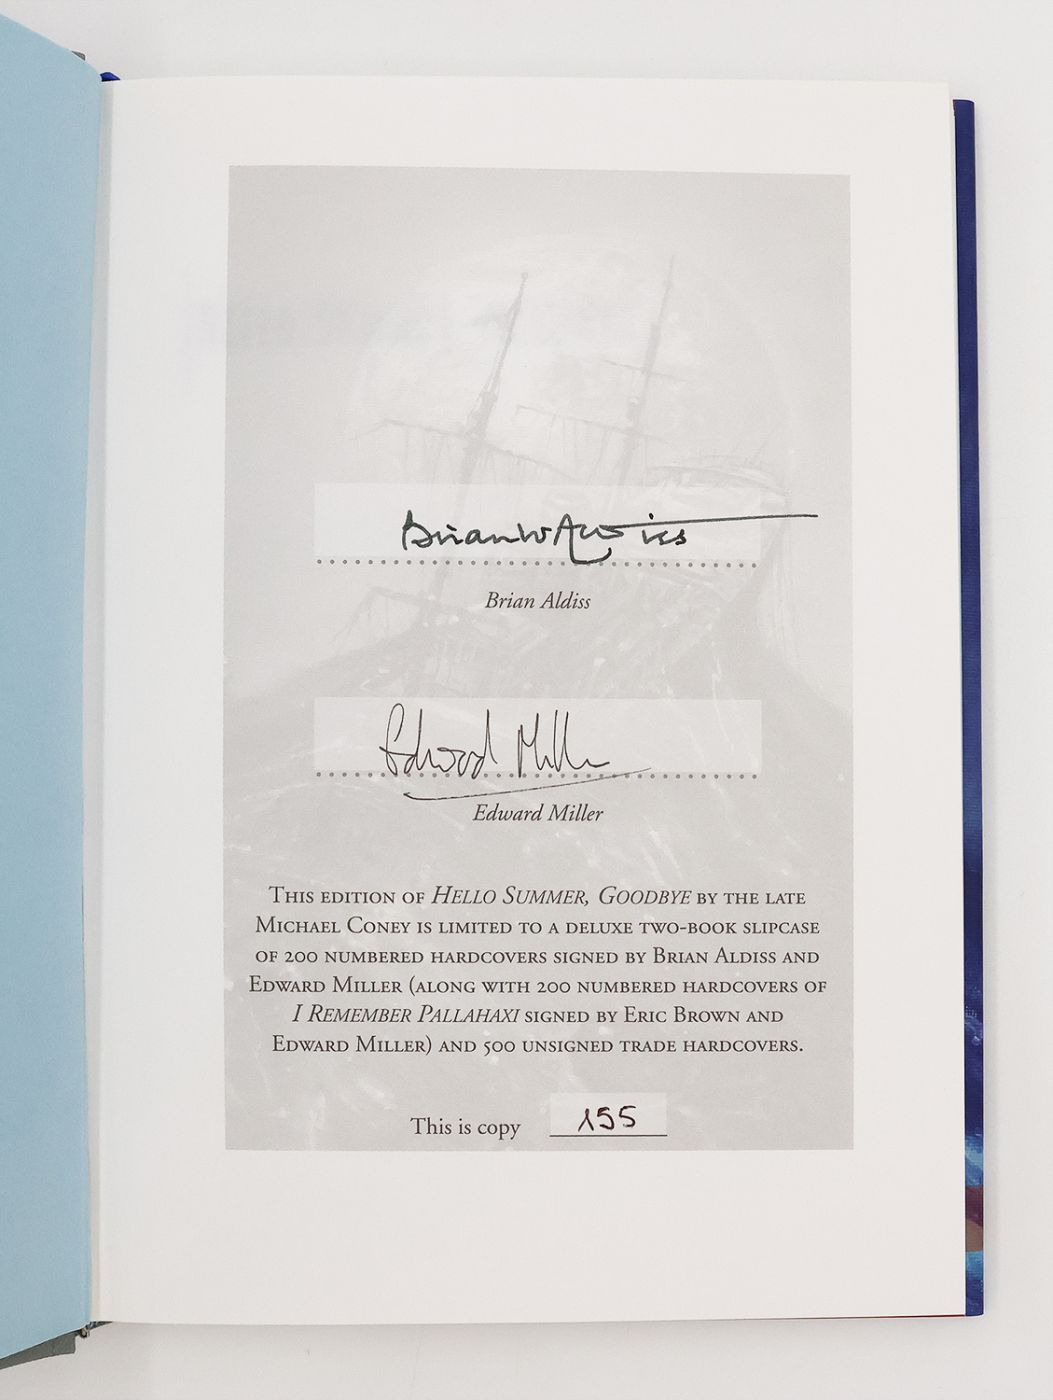 Brian W Aldiss
Brian Aldiss
Edward Miller
Edward Miller
This edition of Hello Summer, Goodbye by the late
Michael Coney is limited to a deluxe two-book slipcase
of 200 numbered hardcovers signed by Brian Aldiss and
Edward Miller (along with 200 numbered hardcovers of
I Remember Pallahaxi signed by Eric Brown and
Edward Miller) and 500 unsigned trade hardcovers.
This is copy 155